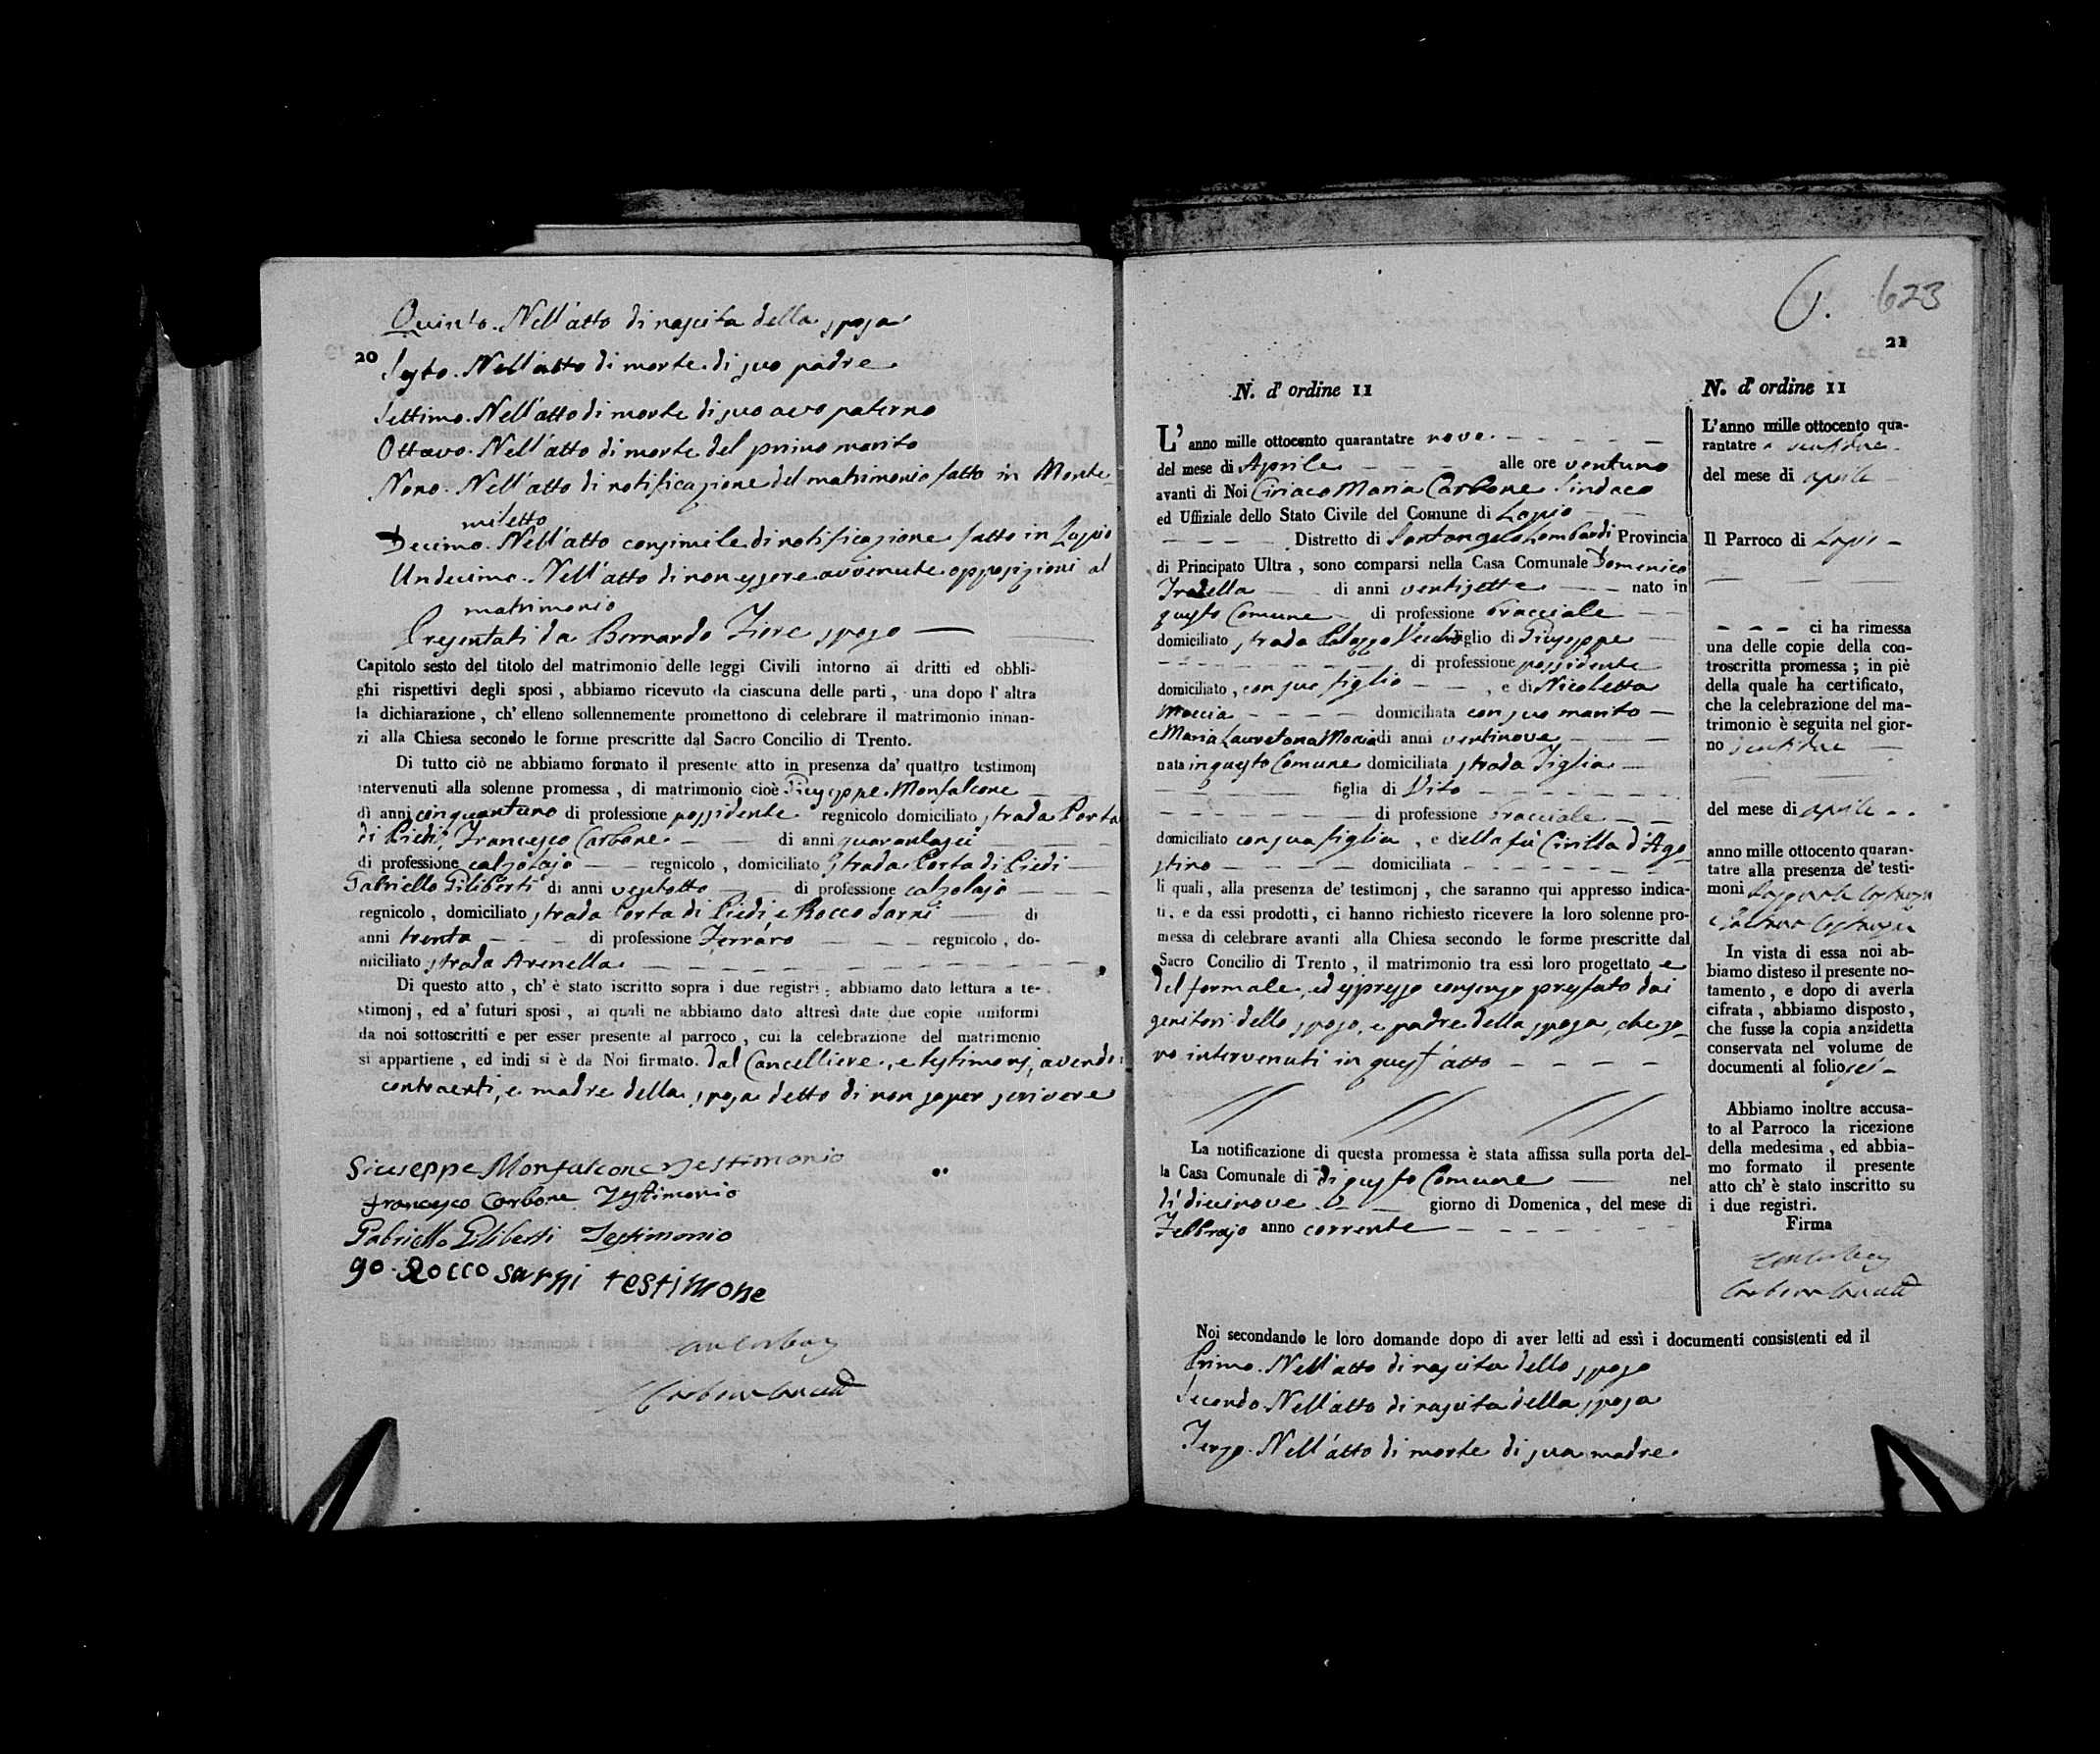 Quinto. Nell'atto di nascita della sposa
20
Sesto. Nell'atto di morte di suo padre
Settimo. Nell'atto di morte di suo avo paterno
Ottavo. Nell'atto di morte del primo marito
Nono. Nell'atto di notificazione del matrimonio fatto in Monte
miletto
Decimo. Nell'atto consimile di notificazione fatto in Lapio
Undecimo. Nell'atto di non essere avvenute opposizioni al
matrimonio
Presentati da Bernardo Fiore sposo
Capitolo sesto del titolo del matrimonio delle leggi Civili intorno ai dritti ed obbli-
ghi rispettivi degli sposi, abbiamo ricevuto da ciascuna delle parti, una dopo l'altra
la dichiarazione, ch'elleno sollennemente promettono di celebrare il matrimonio innan-
zi alla Chiesa secondo le forme prescritte dal Sacro Concilio di Trento.
Di tutto ciò ne abbiamo formato il presente atto in presenza da' quattro testimonj
intervenuti alla solenne promessa, di matrimonio cioè Giuseppe Monfalcone
di anni cinquantuno di professione possidente regnicolo domiciliato strada Porta
di Piedi, Francesco Carbone di anni quarantasei
di professione calzolajo regnicolo, domiciliato strada Porta di Piedi
Gabriello Giliberti di anni ventotto di professione calzolajo
regnicolo, domiciliato strada Porta di Piedi, e Rocco Sarni di
anni trenta di professione Ferraro regnicolo, do-
miciliato strada Arenella
Di questo atto, ch'è stato iscritto sopra i due registri, abbiamo dato lettura a te-
stimonj, ed a' futuri sposi, ai quali ne abbiamo dato altresì date due copie uniformi
da noi sottoscritti e per esser presente al parroco, cui la celebrazione del matrimonio
si appartiene, ed indi si è da Noi firmato. dal Cancelliere, e testimonj, avendo i
contraenti, e madre della sposa detto di non saper scrivere
Giuseppe Monfalcone Testimonio
Francesco Carbone Testimonio
Gabriello Giliberti Testimonio
go. Rocco sarni testimone
6. 623
21
N. d'ordine 11
L'anno mille ottocento quarantatre nove
del mese di Aprile alle ore ventuno
avanti di Noi Ciriaco Maria Carbone Sindaco
ed Uffiziale dello Stato Civile del Comune di Lapio
Distretto di Santangelo Lombardi Provincia
di Principato Ultra, sono comparsi nella Casa Comunale Domenico
di anni ventisette nato in
questo Comune di professione bracciale
domiciliato strada Palazzo Vecchio figlio di Giuseppe
di professione possidente
domiciliato, con suo figlio, e di Nicoletta
Moccia domiciliata con suo marito
e Maria Lauretana Moccia di anni ventinove
nata in questo Comune domiciliata strada Figlia
figlia di Vito
di professione bracciale
domiciliato con sua figlia, e della fù Cirilla d'Ago-
stino domiciliata
li quali, alla presenza de' testimonj, che saranno qui appresso indica-
ti, e da essi prodotti, ci hanno richiesto ricevere la loro solenne pro-
messa di celebrare avanti alla Chiesa secondo le forme prescritte dal
Sacro Concilio di Trento, il matrimonio tra essi loro progettato e
del formale, ed espresso consenso prestato dai
genitori dello sposo, e padre della sposa, che so-
no intervenuti in quest'atto
La notificazione di questa promessa è stata affissa sulla porta del-
la Casa Comunale di di questo Comune nel
dì diecinove giorno di Domenica, del mese di
Febbrajo anno corrente
N. d'ordine 11
L'anno mille ottocento qua-
rantatre
del mese di aprile
Il Parroco di Lapio
ci ha rimessa
una delle copie della con-
troscritta promessa; in piè
della quale ha certificato,
che la celebrazione del ma-
trimonio è seguita nel gior-
no
del mese di aprile
anno mille ottocento quaran-
tatre alla presenza de' testi-
moni
In vista di essa noi ab-
biamo disteso il presente no-
tamento, e dopo di averla
cifrata, abbiamo disposto,
che fusse la copia anzidetta
conservata nel volume de
documenti al folio sei
Abbiamo inoltre accusa-
to al Parroco la ricezione
della medesima, ed abbia-
mo formato il presente
atto ch'è stato inscritto su
i due registri.
Firma
Noi secondando le loro domande dopo di aver letti ad essi i documenti consistenti ed il
Primo. Nell'atto di nascita dello sposo
Secondo. Nell'atto di nascita della sposa
Terzo. Nell'atto di morte di sua madre